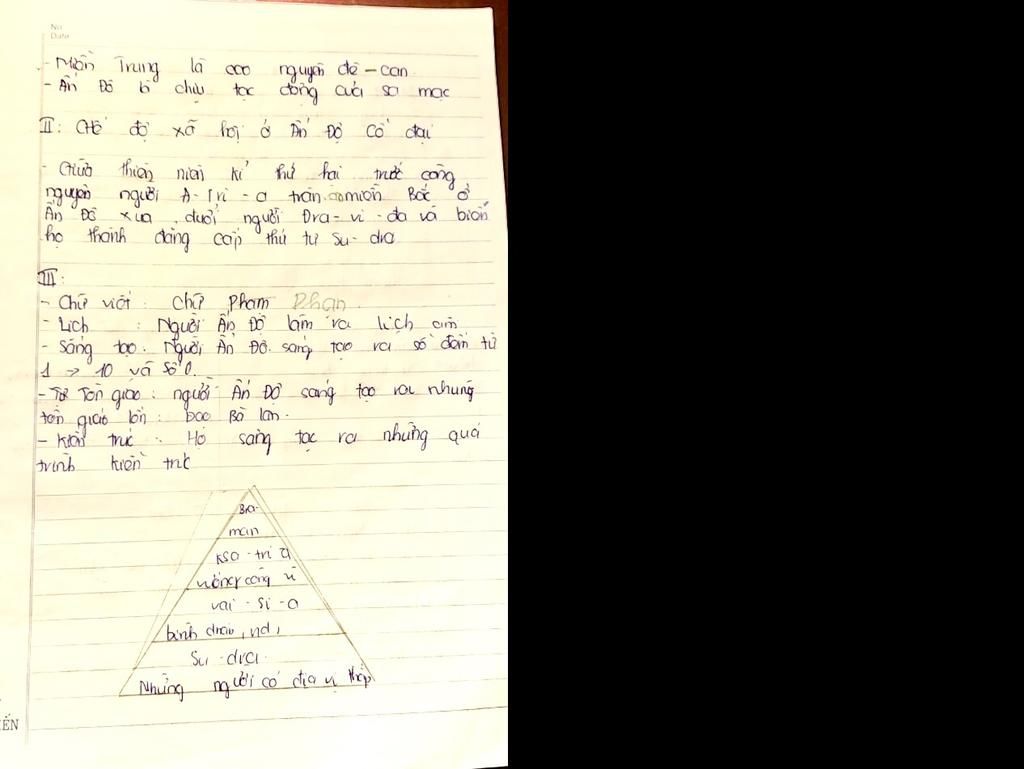 No
Date
- Miền Trung là cao nguyên đê-can
- Ấn Độ bị chịu tác động của sa mạc
II: Chế độ xã hội ở Ấn Độ cổ đại
- Giữa thiên niên kỉ thứ hai trước công
nguyên người A-ri-a tràn miền Bắc ở
Ấn Độ xưa, đuổi người Đra-vi-đa và biến
họ thành đẳng cấp thứ tư Su-dra
III:
- Chữ viết: Chữ Phạm Phạn
- Lịch : Người Ấn Độ làm ra lịch âm
- Sáng tạo: Người Ấn Độ sáng tạo ra số đếm từ
1 → 10 và số 0.
- Tôn giáo: người Ấn Độ sáng tạo ra những
tôn giáo lớn: Đạo Bà lan.
- Kiến trúc: Họ sáng tạc ra những quá
trình kiến trúc
Bra-
man
Ksa-tri-a
vương công vũ
vai-si-a
bình dân, nd,
Su-dra
Những người có địa vị thấp
ẾN